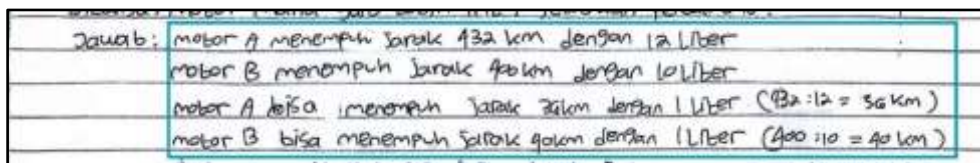 Jawab : motor A menempuh Jarak 432 km dengan 12 Liter
motor B menempuh Jarak 400 km dengan 10 Liter
motor A bisa menempuh Jarak 36km dengan 1 Liter (432 : 12 = 36 km)
motor B bisa menempuh Jarak 40km dengan 1 Liter (400 : 10 = 40 km)